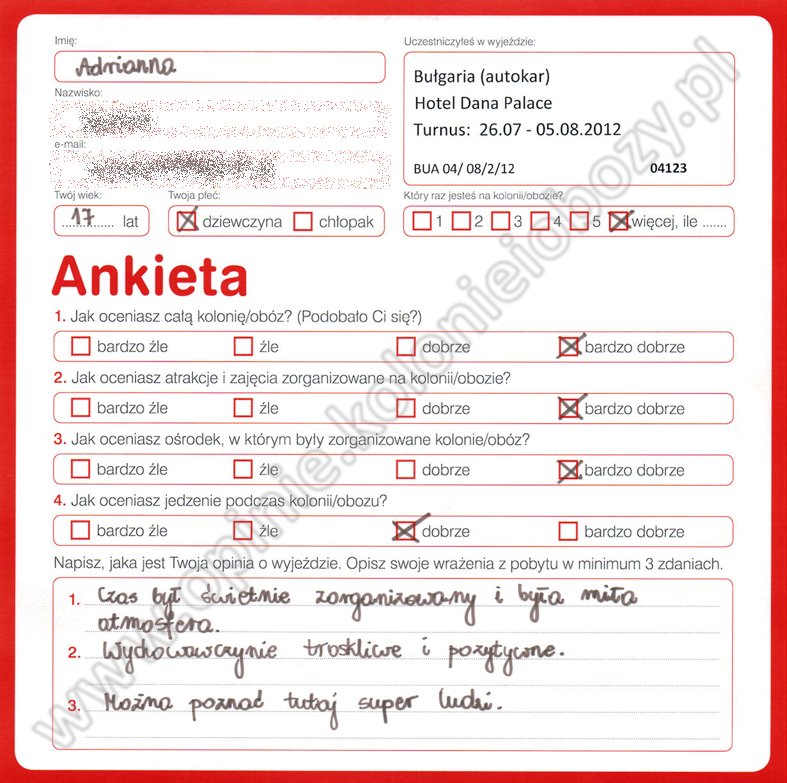 Imię:
Adrianna
Nazwisko:
e-mail:
Twój wiek:
17 lat
Twoja płeć:
dziewczyna chłopak
Uczestniczyłeś w wyjeździe:
Bułgaria (autokar)
Hotel Dana Palace
Turnus: 26.07 - 05.08.2012
BUA 04/ 08/2/12 04123
Który raz jesteś na kolonii/obozie?
1 2 3 4 5 więcej, ile .......
Ankieta
1. Jak oceniasz całą kolonię/obóz? (Podobało Ci się?)
bardzo źle źle dobrze bardzo dobrze
2. Jak oceniasz atrakcje i zajęcia zorganizowane na kolonii/obozie?
bardzo źle źle dobrze bardzo dobrze
3. Jak oceniasz ośrodek, w którym były zorganizowane kolonie/obóz?
bardzo źle źle dobrze bardzo dobrze
4. Jak oceniasz jedzenie podczas kolonii/obozu?
bardzo źle źle dobrze bardzo dobrze
Napisz, jaka jest Twoja opinia o wyjeździe. Opisz swoje wrażenia z pobytu w minimum 3 zdaniach.
1. Czas był świetnie zorganizowany i była miła
atmosfera.
2. Wychowawczynie troskliwe i pozytywne.
3. Można poznać tutaj super ludzi.
www.opinie.kolonieiobozy.pl